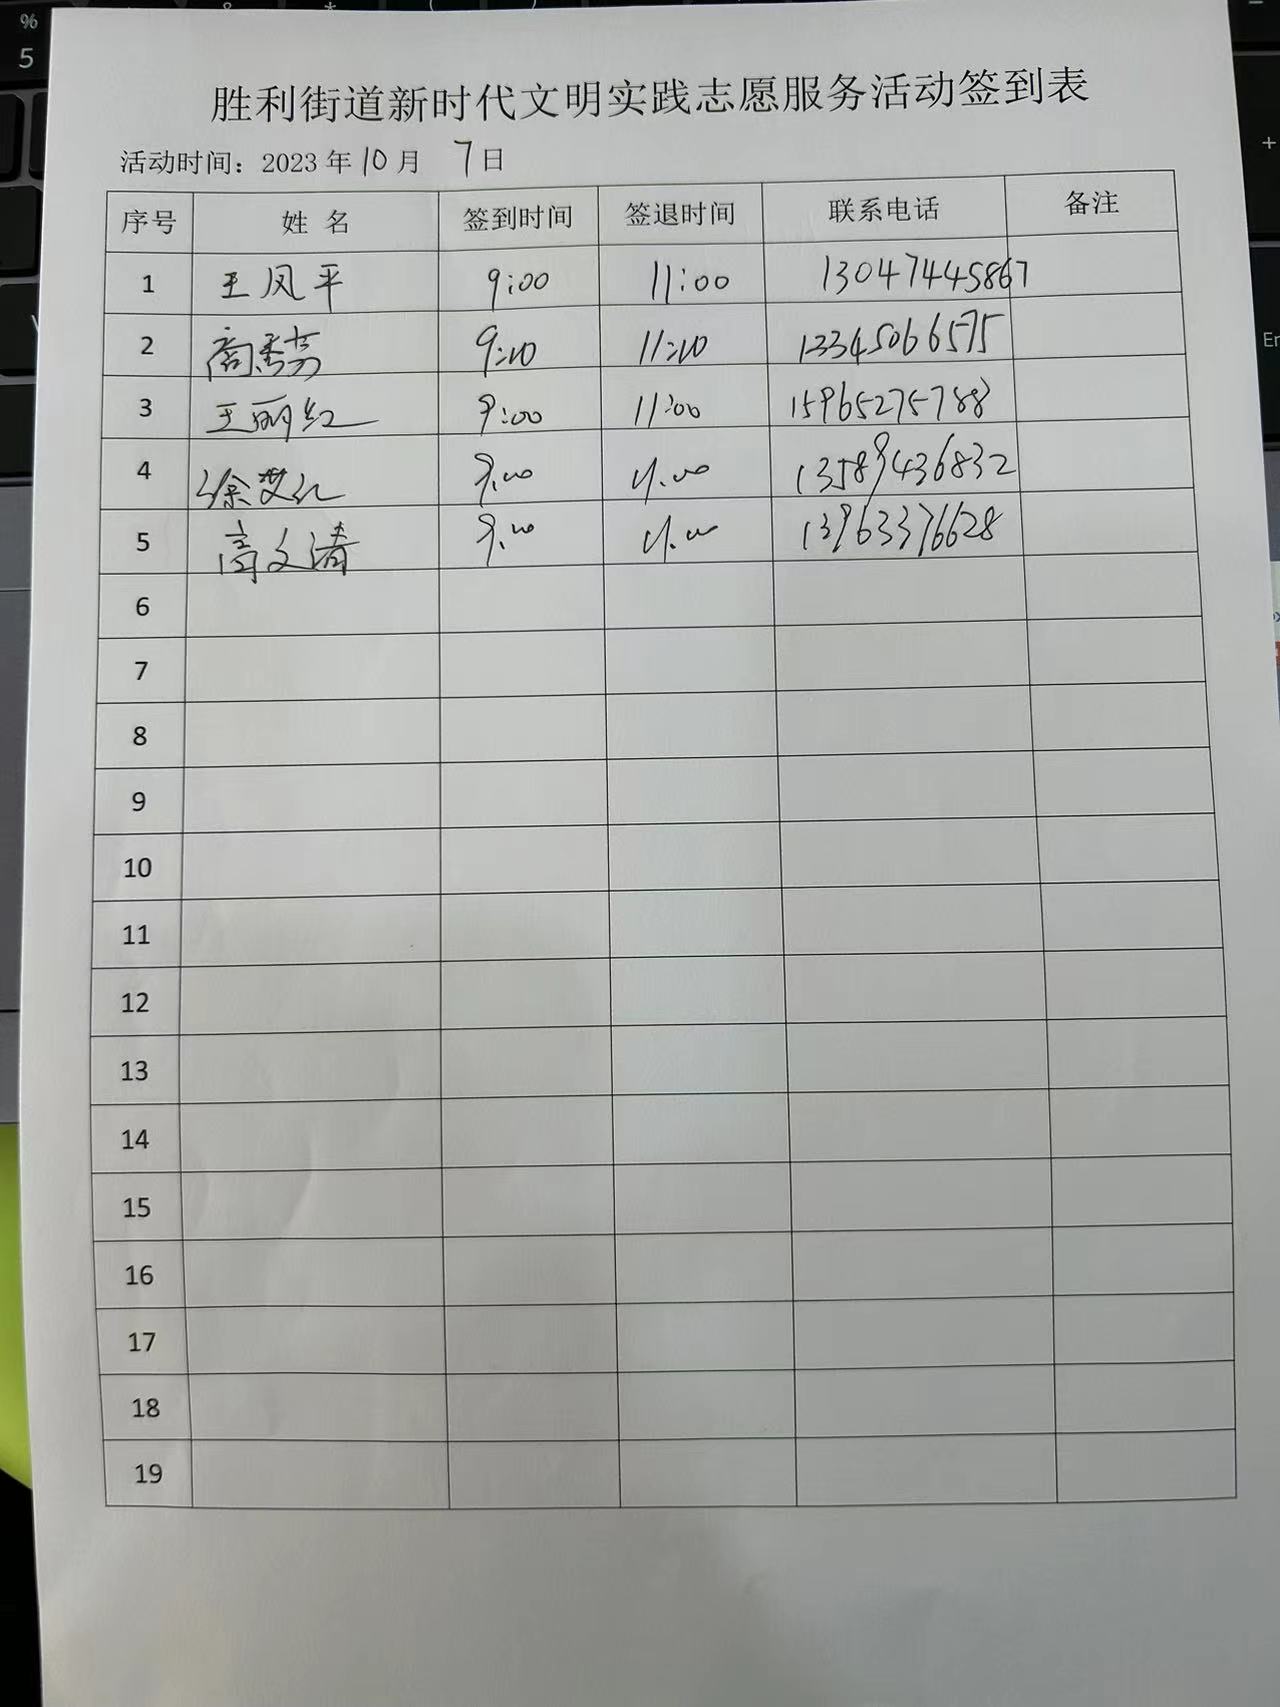 胜利街道新时代文明实践志愿服务活动签到表
活动时间：2023年10月 7日
序号 姓 名 签到时间 签退时间 联系电话 备注
1 王凤平 9:00 11:00 13047445867
2 高秀芳 9:10 11:10 13345066575
3 王丽红 9:00 11:00 15965275788
4 徐艾红 9.00 11.00 13589436832
5 高文清 9.00 11.00 13963376628
6
7
8
9
10
11
12
13
14
15
16
17
18
19
%
5
+